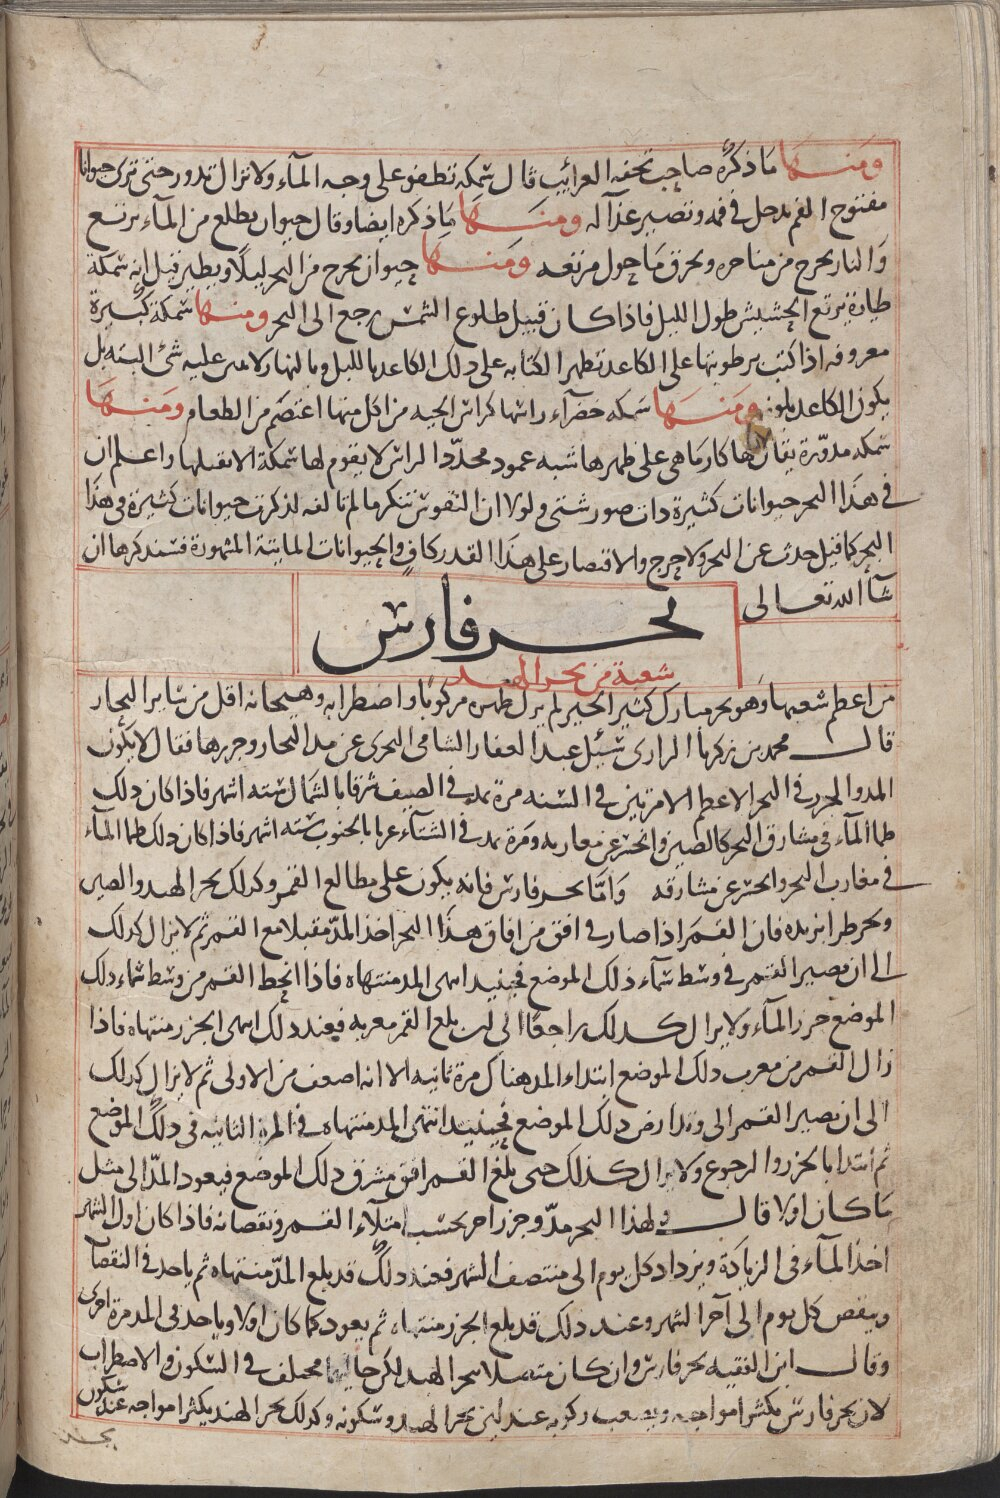 ومنها ما ذكره صاحب تحفه العرائب قال سمكه تطفو على وجه المآء ولا تزال تدور حتى ترى حيوانا
مفتوح الفم يدخل في فمه وتصير غذآ له ومنها ما ذكره ايضا وقال حيوان يطلع من المآء يرتع
والنار تخرج من مناخره ويحرق ما حول مرتعه ومنها حيوان يخرج من البحر ليلا ويطير قيل انه سمكة
طيارة يرتع الحشيش طول الليل فاذا كان قبيل طلوع الشمس رجع الى البحر ومنها سمكة كبيرة
معروفه اذا كتب برطوبتها على الكاغد تظهر الكتابه على ذلك الكاغد بالليل وبالنهار لا يرى عليه شئ البته بل
يكون الكاغد بلونه ومنها سمكه خضرآء راسها كراس الحيه من اكل منها اعتصم من الطعام ومنها
سمكه مدورة يقال لها كارماهى على ظهرها شبه عمود محدد الراس لا يقوم لها سمكة الا تقتلها واعلم ان
في هذا البحر حيوانات كثيرة ذات صور شتى ولولا ان النفوس تنكر ما لم تالفه لذكرت حيوانات كثيرة وفي هذا
البحر كما قيل حدث عن البحر ولا حرج والاقتصار على هذا القدر كاف والحيوانات المايئة المشهورة فسنذكرها ان
شآ الله تعالى
بحر فارس
شعبة من بحر الهند
من اعظم شعبها وهو بحر مبارك كثير الخير لم يزل ظهره مركوبا واضطرابه وهيجانه اقل من ساير البحار
قال محمد بن زكريا الرازى سئل عبد الغفار الشامى البحرى عن مد البحار وجزرها فقال لا يكون
المد والجزر في البحر الاعظم الا مرتين في السنه مرة يمد في الصيف شرقا بالشمال سته اشهر فاذا كان ذلك
طما المآء في مشارق البحر كالصين وانحسر عن مغاربه ومرة يمد في الشتآء غربا بالجنوب سته اشهر فاذا كان ذلك طما المآء
في مغارب البحر وانحسر عن مشارقه واما بحر فارس فانه يكون على مطالع القمر وكذلك بحر الهند والصين
وبحر طرابزنده فان القمر اذا صار في افق من افاق هذا البحر اخذ المد مقبلا مع القمر ثم لا يزال كذلك
الى ان يصير القمر في وسط سمآء ذلك الموضع فحينيذ انتهى المد منتهاه فاذا انحط القمر من وسط سماء ذلك
الموضع جزر المآء ولا يزال كذلك راجعا الى ان بلغ القمر مغربه فعند ذلك انتهى الجزر منتهاه فاذا
زال القمر من مغرب ذلك الموضع ابتداء المد هناك مرة ثانيه الا انه اضعف من الاولى ثم لا يزال كذلك
الى ان يصير القمر الى وتد ارض ذلك الموضع فحينيذ انتهى المد منتهاه في المرة الثانيه في ذلك الموضع
ثم ابتدا بالجزر والرجوع ولا يزال كذلك حتى بلغ القمر افق مشرق ذلك الموضع فيعود المد الى مثل
ما كان اولا قال ولهذا البحر مد وجزر اخر بحسب امتلاء القمر ونقصانه فاذا كان اول الشهر
اخذ المآء في الزيادة ويزداد كل يوم الى منتصف الشهر فعند ذلك قد بلغ المد منتهاه ثم ياخذ في النقصان
وينقص كل يوم الى آخر الشهر وعند ذلك قد بلغ الجزر منتهاه ثم يعود كما كان اولا وياخذ في المد مرة اخرى
وقال ابن الفقيه بحر فارس وان كان متصلا ببحر الهند لكن حاليهما مختلف في السكون والاضطراب
لان بحر فارس يكثر امواجه ويصعب ركوبه عند لين بحر الهند وسكونه وكذلك بحر الهند يكثر امواجه عند سكون
بحر